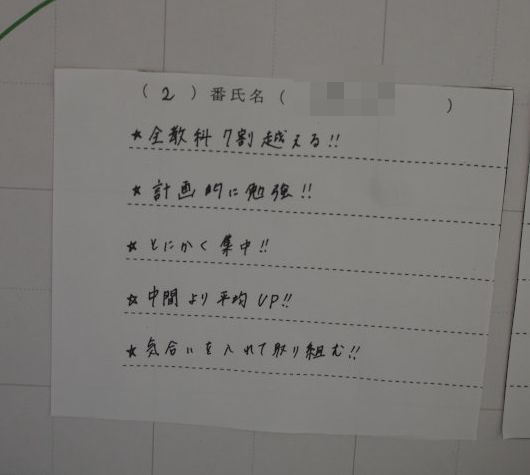 (2)番氏名( )
★全教科7割越える!!
★計画的に勉強!!
★とにかく集中!!
★中間より平均UP!!
★気合いを入れて取り組む!!